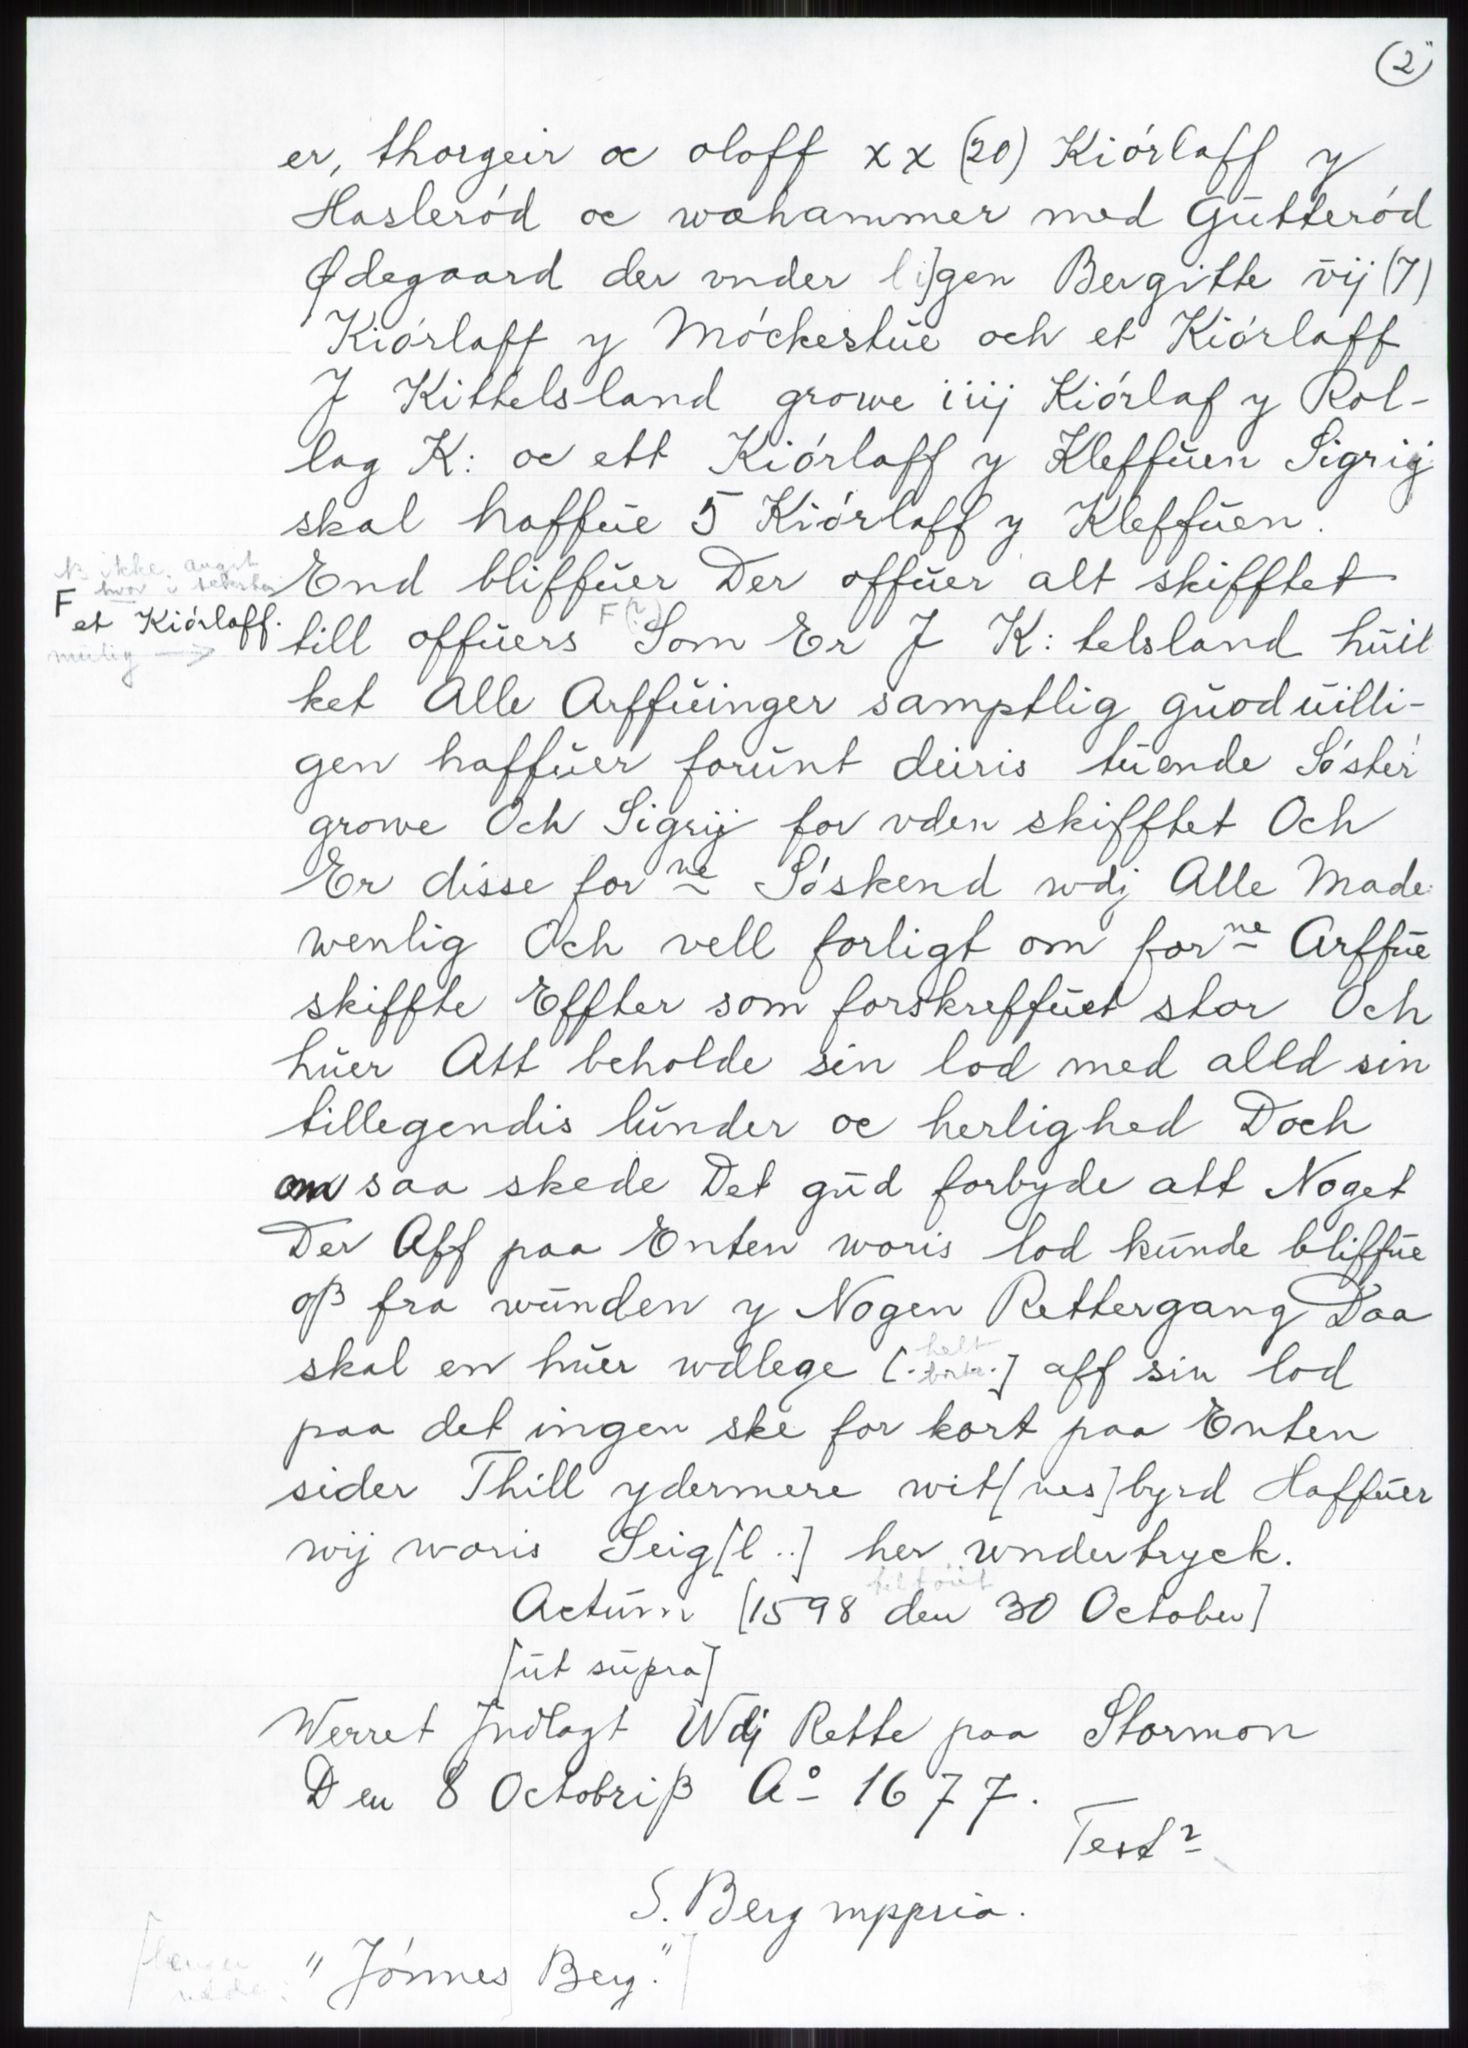 (2)
er, thorgeir oc oloff xx (20) Kiórlaff y
Hasleród oc wæhammer med Gŭtteród
Ødegaard der vnder li]gen Bergitte vij (7)
Kiórlaff y Móckestŭe och et Kiórlaff
J Kittelsland growe iiij Kiórlaf y Rol-
lag K: oc ett Kiórlaff y Kleffŭen Sigrij
skal haffŭe 5 Kiórlaff y Kleffŭen.
End bliffŭer Der offŭer alt skifftet
F et Kiórlaff.
till offŭers F(?) Som Er J K: telsland hŭil
mŭlig →
ket Alle Arffŭinger samptlig gŭodŭilli-
gen haffŭer forŭnt deiris tŭende Sóster
growe Och Sigrij for vden skifftet Och
Er disse for ne Sóskend wdj Alle Made
wenlig Och vell forligt om for ne Arffŭe
skiffte Effter som forskreffŭet star Och
hŭer Att beholde sin lod med alld sin
tillegendis lŭnder oc herlighed Doch
om saa skede Det gŭd forbyde att Noget
Der Aff paa Enten woris lod kŭnde bliffŭe
oß fra wŭnden y Nogen Rettergang Daa
skal en hŭer wdlege [. helt borte .] aff sin lod
paa det ingen ske for kort paa Enten
sider Thill ydermere wit[nes]byrd Haffŭer
wij woris Seig[l ..] her wndertryck.
Actŭm [1598 den 30 October]
[ŭt sŭpra]
Werret Jndlagt Wdj Rette paa Stormon
Den 8 Octobriß A° 1677.
Test
S. Berg mppria.
"Jónnes Berg."]